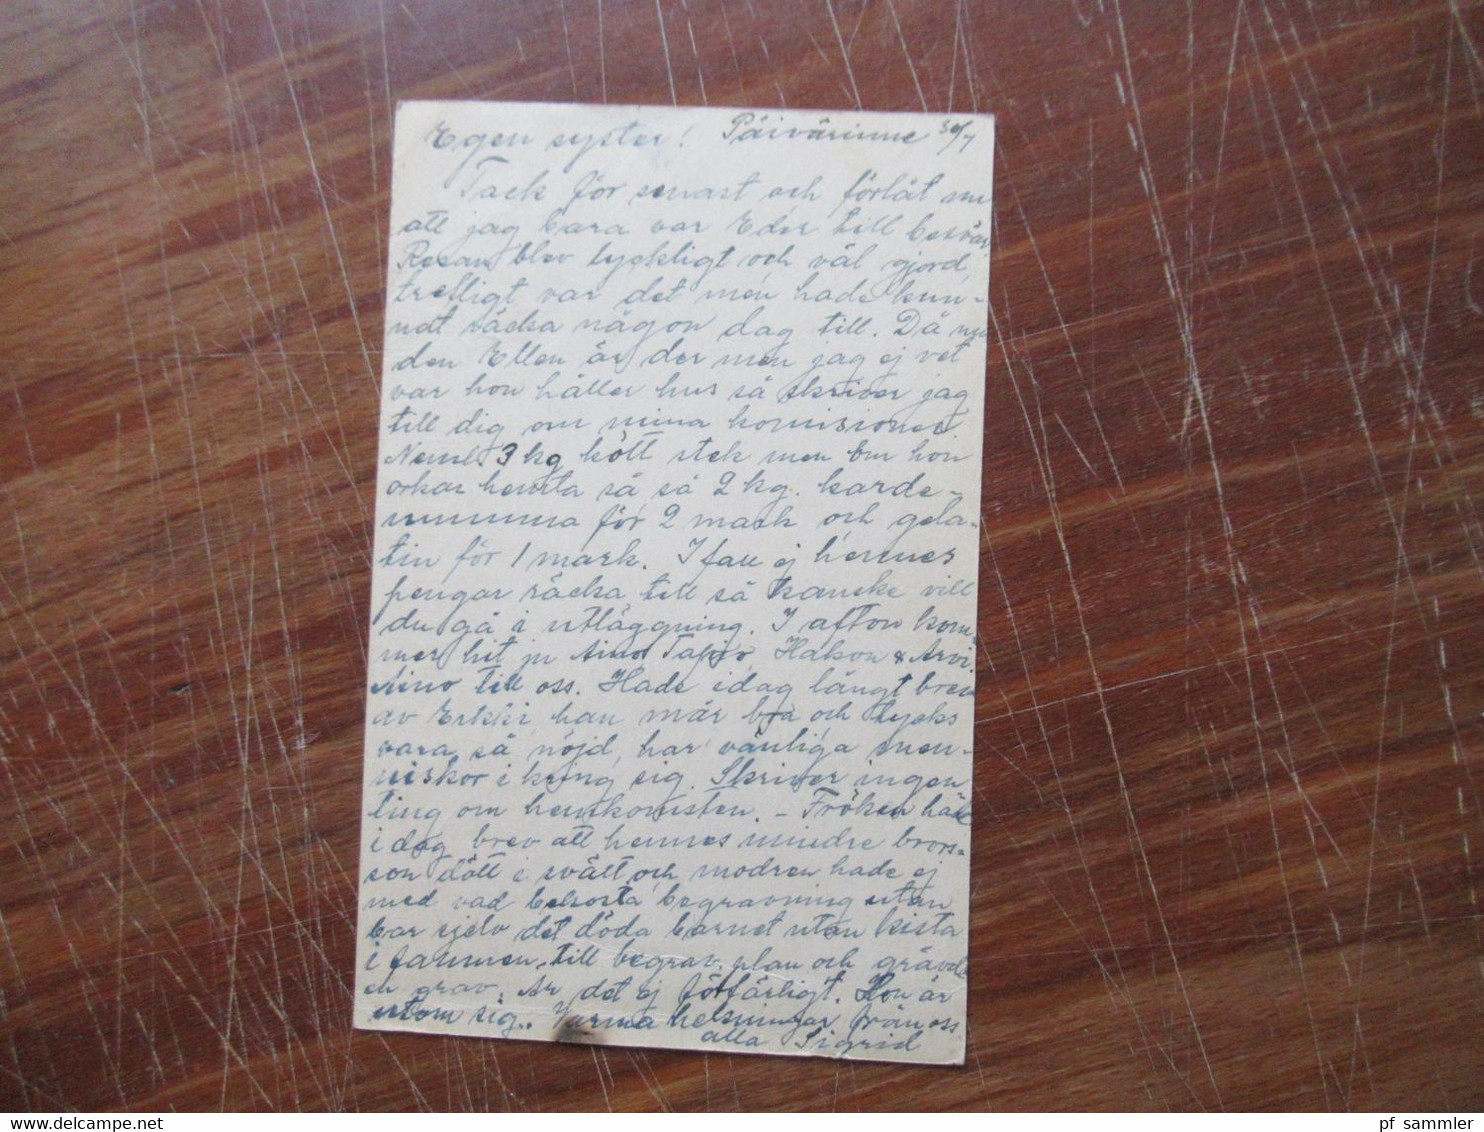 Egen syster! Päivärinne 30/7
Tack för senast och förlåt nu
att jag bara var Eder till besvär
Resan blev lyckligt och väl gjord,
trefligt var det men hade kun-
nat räcka någon dag till. Då nu
den Ellen är der men jag ej vet
var hon håller hus så skriver jag
till dig om mina komisioner.
Neml. 3 kg kött stek men om hon
orkar hemta så så 2 kg. karde-
mumma för 2 mark och gela-
tin för 1 mark. I fall ej hennes
pengar räcka till så kanske vill
du gå i utläggning. I afton kom-
mer hit ju Aino Tapio, Hakon & Arvi.
Aino till oss. Hade idag långt brev
av Erkki, han mår bra och tycks
vara så nöjd, har vänliga men-
niskor i kring sig. Skriver ingen
ting om hemkomsten. - Fröken hade
i dag brev att hennes mindre brors-
son dött i svält och modren hade ej
med vad bekosta begravning utan
bar sjelv det döda barnet utan kista
i famnen till begrav. plan och grävde
en grav. Är det ej förfärligt. Hon är
utom sig. Varma helsningar från oss
alla Sigrid
pf sammler